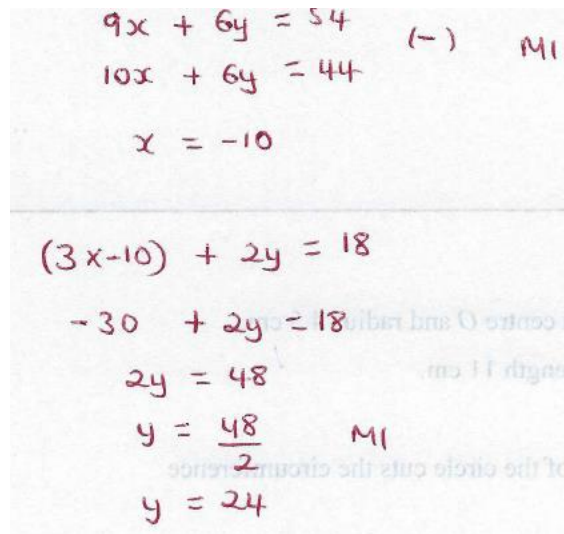 9x + 6y = 54 (-) M1
10x + 6y = 44
x = -10
(3x-10) + 2y = 18
-30 + 2y = 18
2y = 48
y = 48/2 M1
y = 24